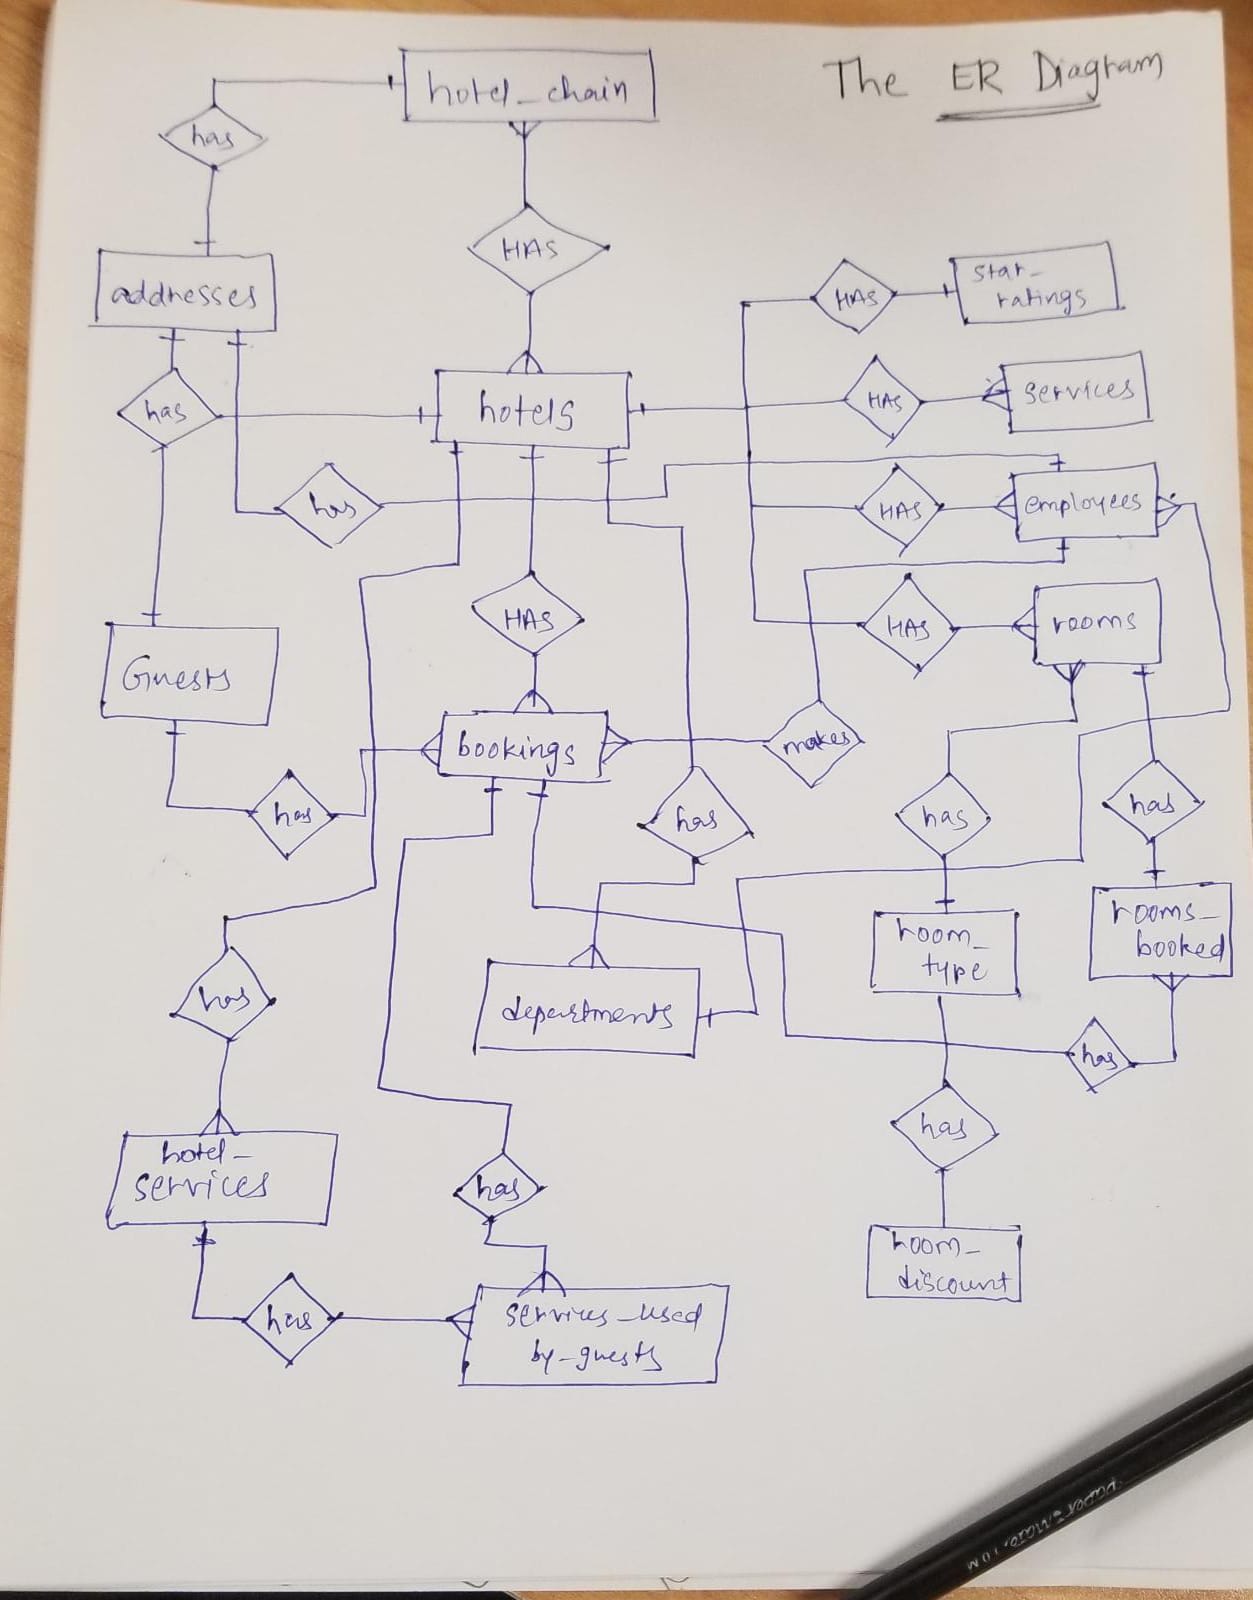 The ER Diagram
hotel_chain
has
HAS
addresses
HAS
star_
ratings
has
hotels
HAS
services
has
HAS
employees
HAS
HAS
rooms
Guests
bookings
makes
has
has
has
has
room_
type
rooms_
booked
has
departments
has
has
hotel_
services
has
room_
discount
has
services_used
by_guests